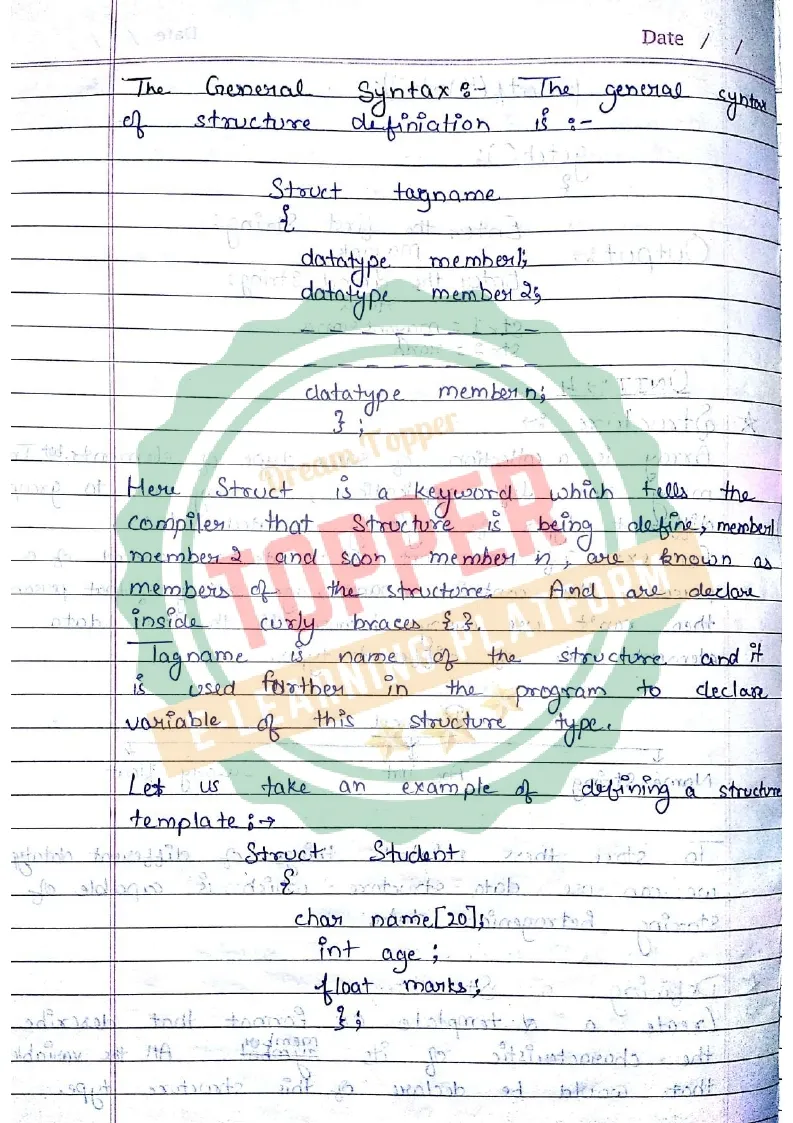 Date / /
The General Syntax :- The general syntax
of structure definiation is :-
Struct tagname
{
datatype member1;
datatype member 2;
- - - - - - - - - -
- - - - - - - - - -
datatype member n;
} ;
Dream Topper
Here Struct is a keyword which tells the
compiler that Structure is being define, member1
member 2 and soon member n, are known as
members of the structure. And are declare
inside curly braces { }.
TOPPER
E-LEARNING PLATFORM
Tagname is name of the structure and it
is used further in the program to declare
variable of this structure type.
Let us take an example of defining a structure
template :→
Struct Student
{
char name[20];
int age ;
float marks ;
} ;